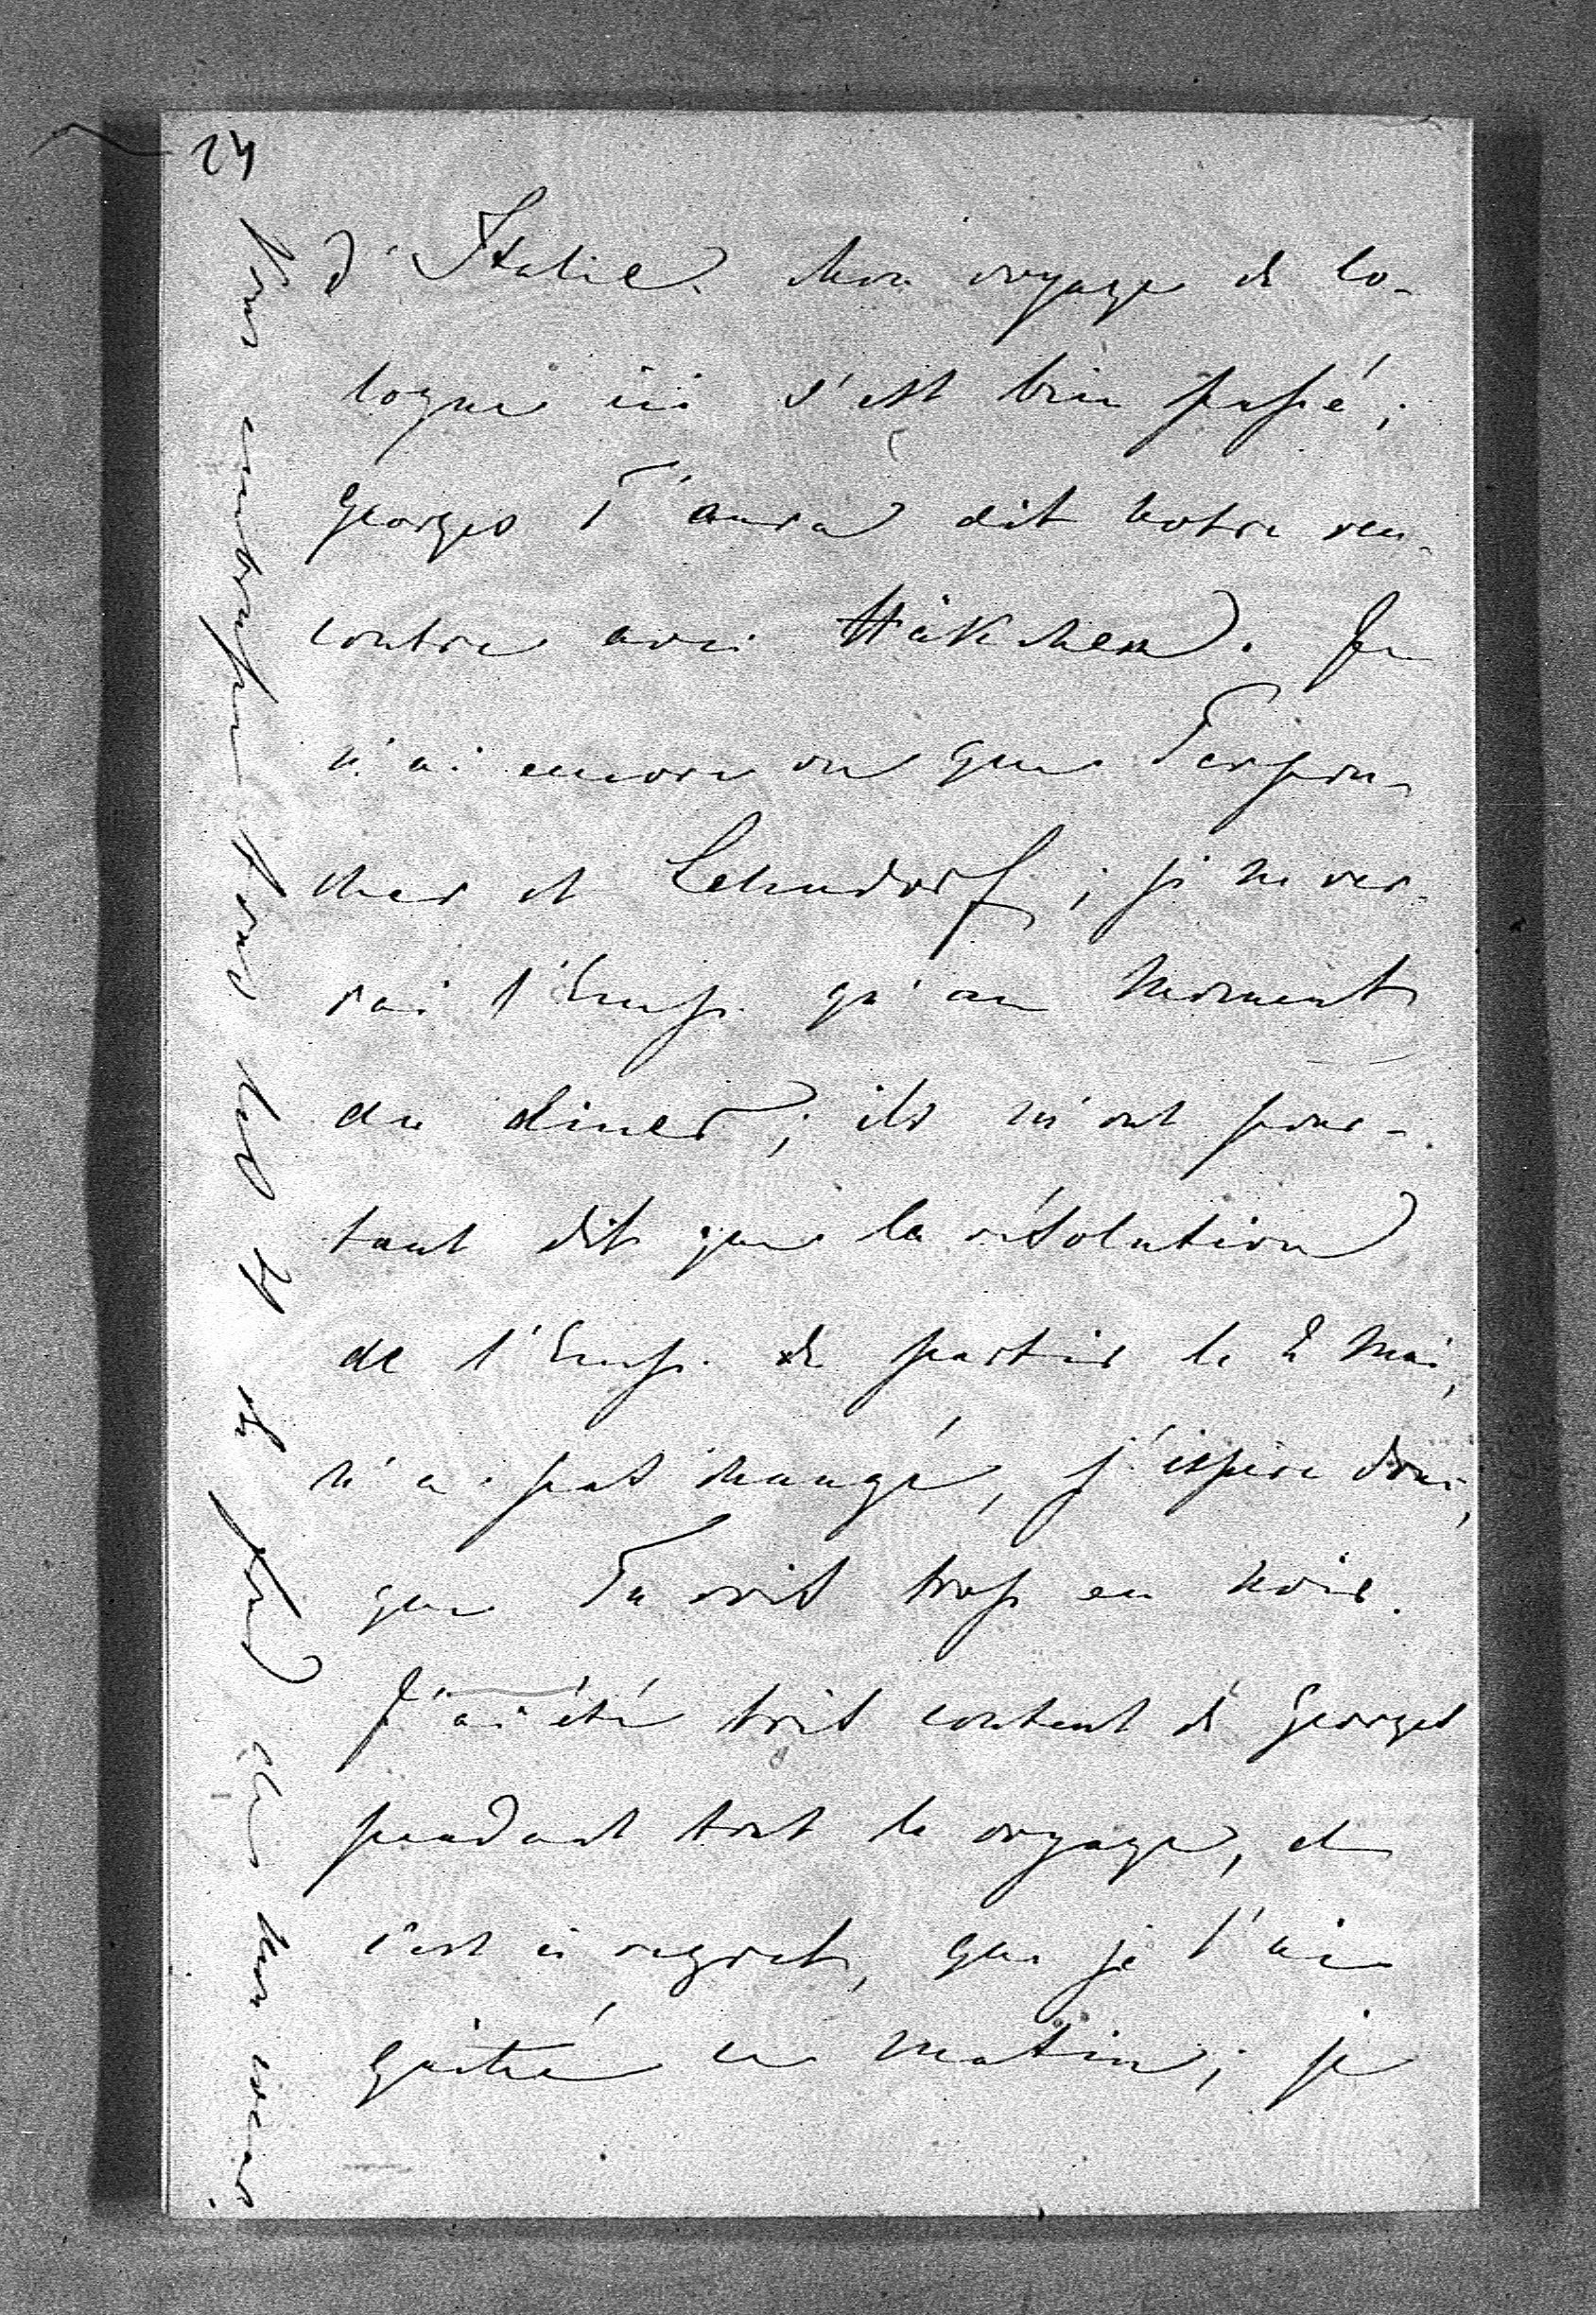 24
d'Italie. Mon voyage de Co-
logne ici s'est bien passé;
Georges T'aura dit notre ren-
contre avec Häkchen. Je
n'ai encore vu que Perpon-
cher et Lehndorf; je ne ver-
rai l'Emp. qu'au moment
du diner; ils m'ont pour-
tant dit que la résolution
de l'Emp. de partir le 2 Mai,
n'a pas changé, j'espère donc,
que Tu vois trop en noir.
J'ai été très content de Georges
pendant tout le voyage, et
c'est à regret, que je l'ai
quitté ce matin; je
Vous embrasse tous
de fond de mon cœur.